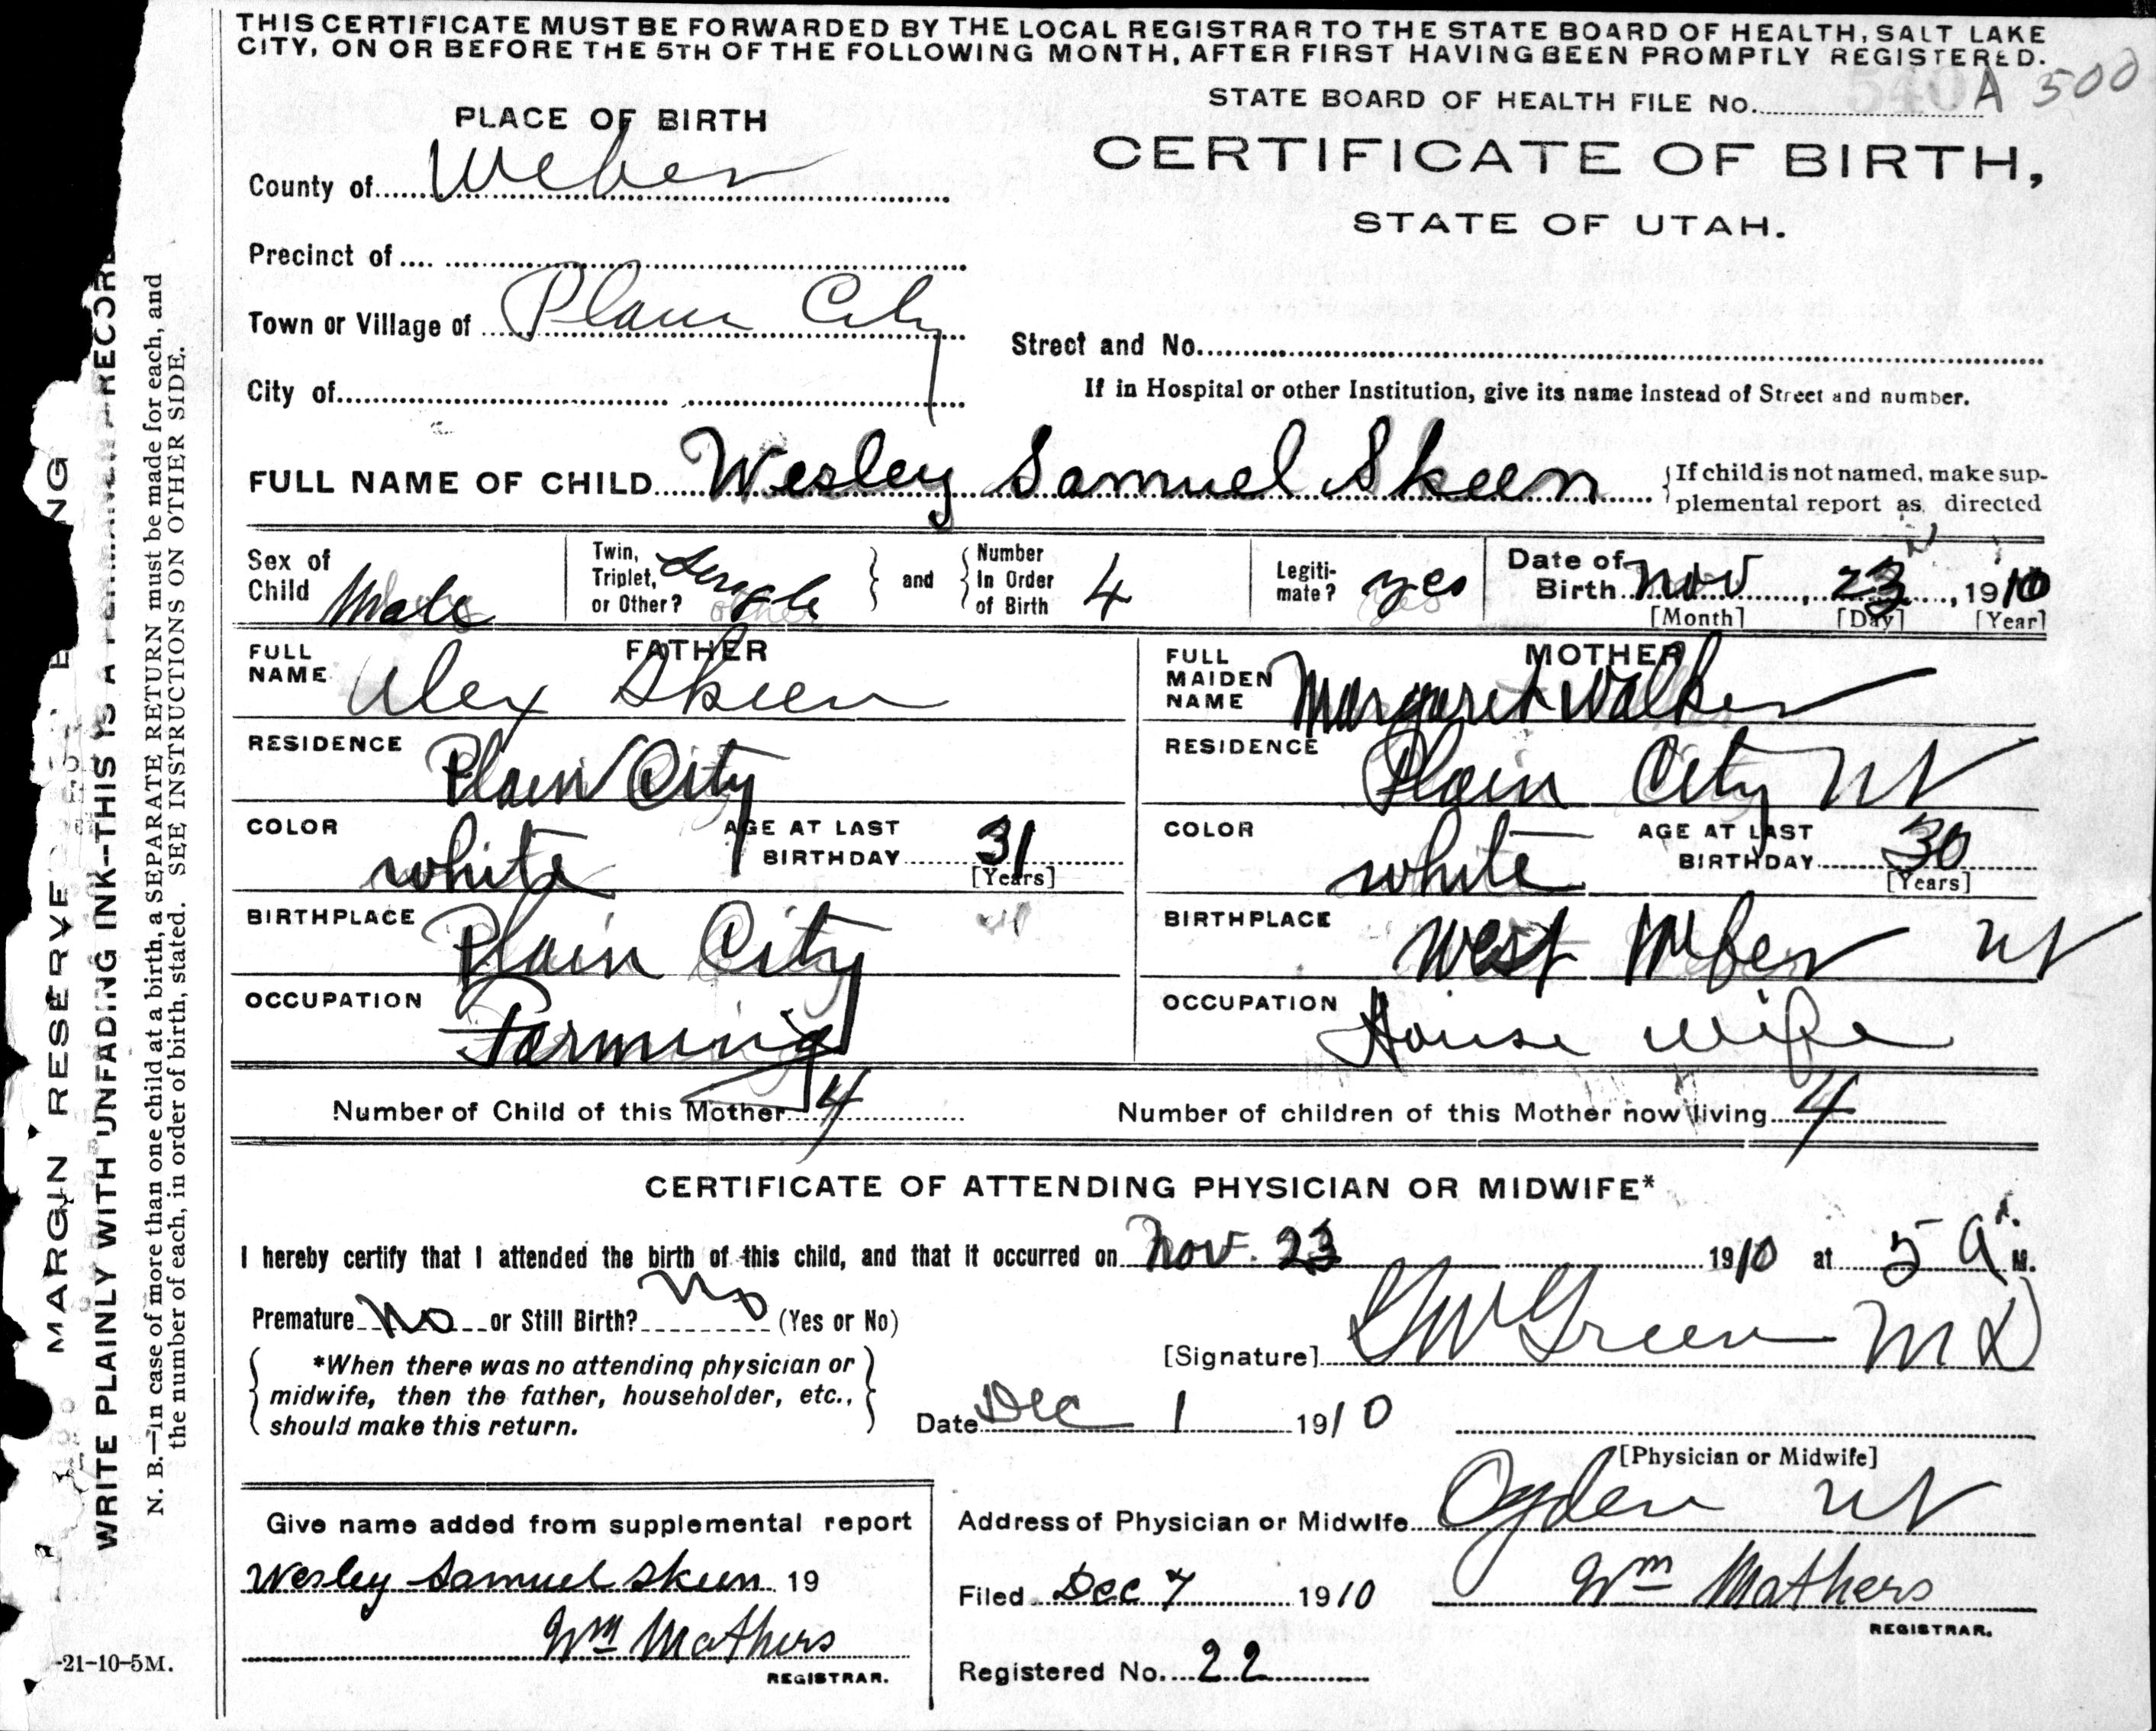 THIS CERTIFICATE MUST BE FORWARDED BY THE LOCAL REGISTRAR TO THE STATE BOARD OF HEALTH, SALT LAKE
CITY, ON OR BEFORE THE 5TH OF THE FOLLOWING MONTH, AFTER FIRST HAVING BEEN PROMPTLY REGISTERED.
STATE BOARD OF HEALTH FILE No. 540 A 500
PLACE OF BIRTH
CERTIFICATE OF BIRTH,
STATE OF UTAH.
County of Weber
Precinct of
Town or Village of Plain City
Street and No.
City of
If in Hospital or other Institution, give its name instead of Street and number.
FULL NAME OF CHILD Wesley Samuel Skeen
{If child is not named, make sup-
plemental report as directed
Sex of Child Male
Twin, Triplet, or Other? Single
and
Number In Order of Birth 4
Legiti-mate? yes
Date of Birth Nov, 23, 1910
[Month] [Day] [Year]
FATHER
FULL NAME Alex Skeen
RESIDENCE Plain City
COLOR white
AGE AT LAST BIRTHDAY 31
[Years]
BIRTHPLACE Plain City
OCCUPATION Farming
MOTHER
FULL MAIDEN NAME Margaret Walker
RESIDENCE Plain City Ut
COLOR white
AGE AT LAST BIRTHDAY 30
[Years]
BIRTHPLACE West Weber Ut
OCCUPATION House wife
Number of Child of this Mother 4
Number of children of this Mother now living 4
CERTIFICATE OF ATTENDING PHYSICIAN OR MIDWIFE*
I hereby certify that I attended the birth of this child, and that it occurred on Nov. 23 1910 at 5 A. M.
Premature No or Still Birth? No (Yes or No)
[Signature] GW Green MD
*When there was no attending physician or
midwife, then the father, householder, etc.,
should make this return.
Date Dec 1 1910
[Physician or Midwife]
Give name added from supplemental report
Wesley Samuel Skeen 19
Wm Mathers
REGISTRAR.
Address of Physician or Midwife Ogden Ut
Filed Dec 7 1910 Wm Mathers
REGISTRAR.
Registered No. 22
-21-10-5M.
MARGIN RESERVE
WRITE PLAINLY WITH UNFADING INK--THIS IS A PERMANENT RECORD
N. B.—In case of more than one child at a birth, a SEPARATE RETURN must be made for each, and
the number of each, in order of birth, stated. SEE INSTRUCTIONS ON OTHER SIDE.